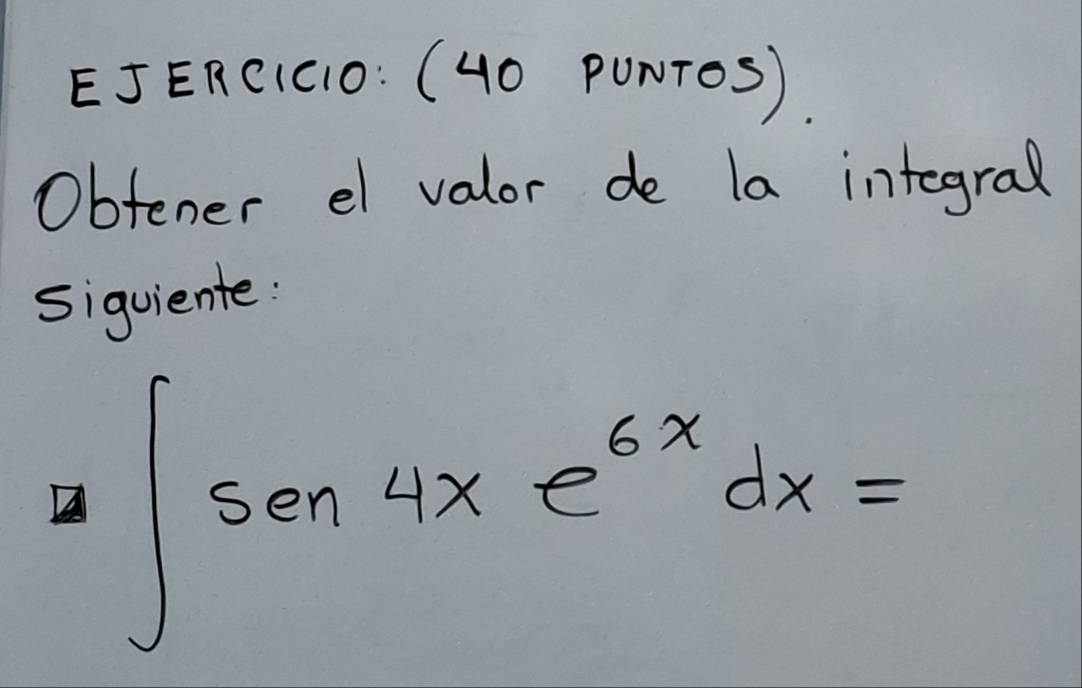 EJERCICIO: (40 PUNTOS).
Obtener el valor de la integral
siguiente:
∫ sen 4x e^{6x} dx =